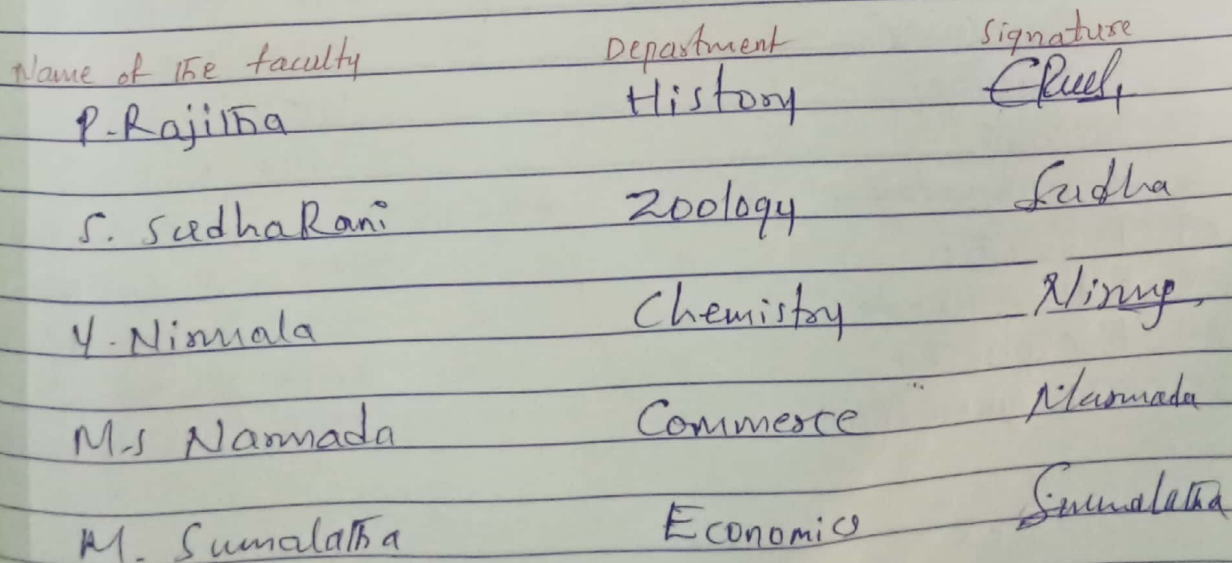 Name of the faculty Department Signature
P. Rajitha History
S. SudhaRani Zoology Sudha
Y. Nirmala Chemistry
M.S Narmada Commerce Narmada
M. Sumalatha Economics Sumalatha